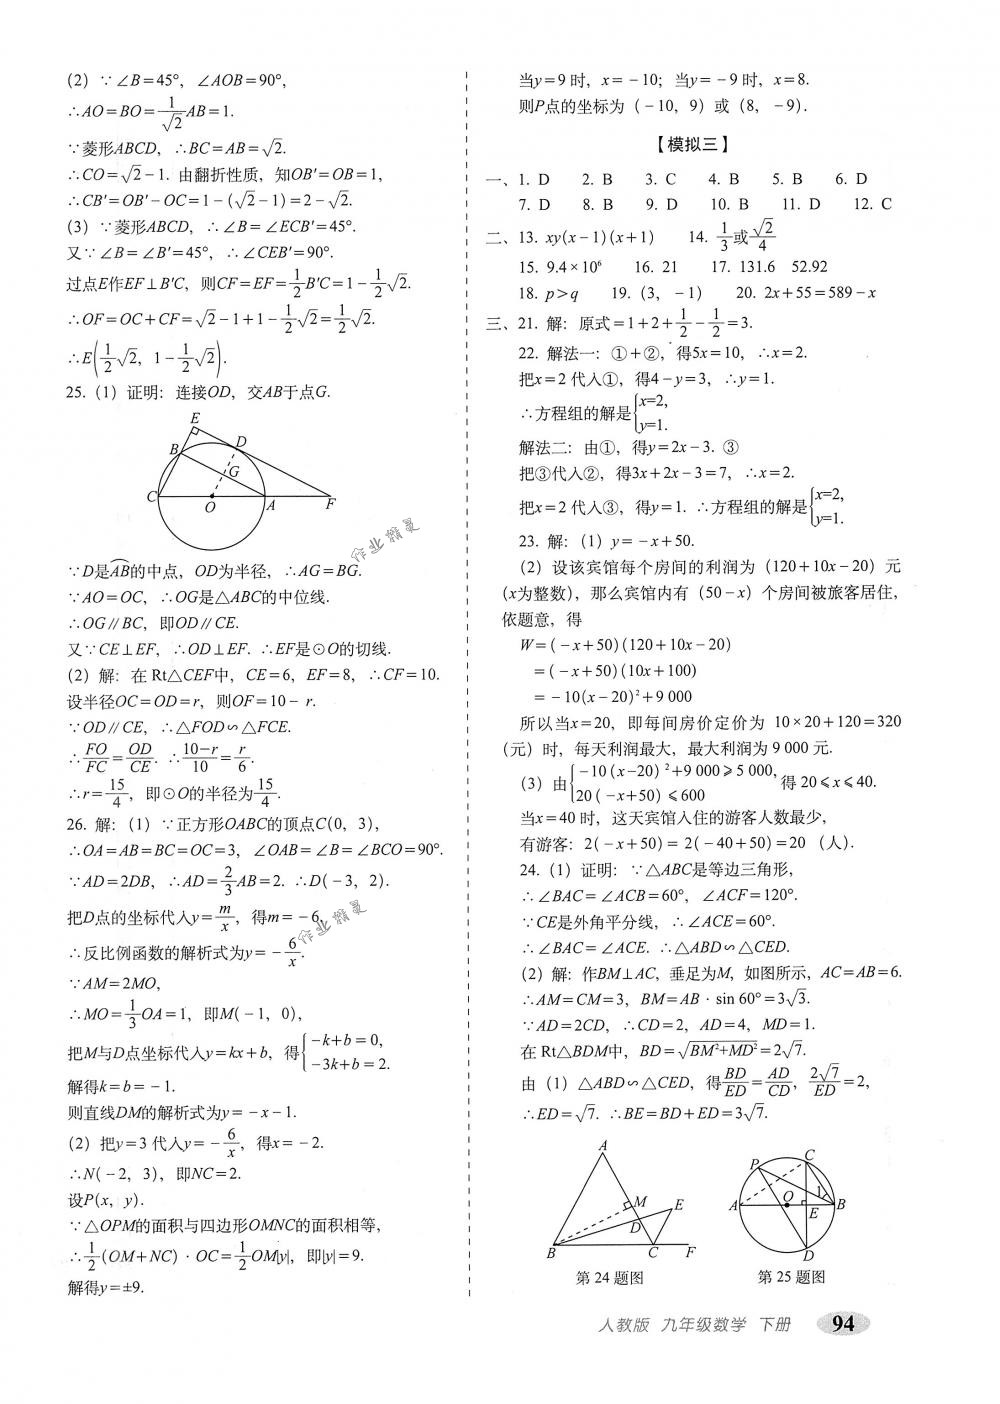 (2) ∵∠B=45°, ∠AOB=90°,
∴AO=BO=1/√2 AB=1.
∵菱形ABCD, ∴BC=AB=√2.
∴CO=√2-1. 由翻折性质, 知OB′=OB=1,
∴CB′=OB′-OC=1-(√2-1)=2-√2.
(3) ∵菱形ABCD, ∴∠B=∠ECB′=45°.
又∵∠B=∠B′=45°, ∴∠CEB′=90°.
过点E作EF⊥B′C, 则CF=EF=1/2 B′C=1-1/2 √2.
∴OF=OC+CF=√2-1+1-1/2 √2=1/2 √2.
∴E(1/2 √2, 1-1/2 √2).
25. (1) 证明: 连接OD, 交AB于点G.
E
B
D
G
C
O
A
F
作业精灵
∵D是AB⌒的中点, OD为半径, ∴AG=BG.
∵AO=OC, ∴OG是△ABC的中位线.
∴OG∥BC, 即OD∥CE.
又∵CE⊥EF, ∴OD⊥EF. ∴EF是⊙O的切线.
(2) 解: 在Rt△CEF中, CE=6, EF=8, ∴CF=10.
设半径OC=OD=r, 则OF=10-r.
∵OD∥CE, ∴△FOD∽△FCE.
∴FO/FC=OD/CE. ∴(10-r)/10=r/6.
∴r=15/4, 即⊙O的半径为15/4.
26. 解: (1) ∵正方形OABC的顶点C(0, 3),
∴OA=AB=BC=OC=3, ∠OAB=∠B=∠BCO=90°.
∵AD=2DB, ∴AD=2/3 AB=2. ∴D(-3, 2).
把D点的坐标代入y=m/x, 得m=-6.
作业精灵
∴反比例函数的解析式为y=-6/x.
∵AM=2MO,
∴MO=1/3 OA=1, 即M(-1, 0),
把M与D点坐标代入y=kx+b, 得{-k+b=0,
-3k+b=2.
解得k=b=-1.
则直线DM的解析式为y=-x-1.
(2) 把y=3代入y=-6/x, 得x=-2.
∴N(-2, 3), 即NC=2.
设P(x, y).
∵△OPM的面积与四边形OMNC的面积相等,
∴1/2(OM+NC)·OC=1/2 OM|y|, 即|y|=9.
解得y=±9.
当y=9时, x=-10; 当y=-9时, x=8.
则P点的坐标为(-10, 9)或(8, -9).
【模拟三】
一、1. D 2. B 3. C 4. B 5. B 6. D
7. D 8. B 9. D 10. B 11. D 12. C
二、13. xy(x-1)(x+1) 14. 1/3或√2/4
15. 9.4×10⁶ 16. 21 17. 131.6 52.92
18. p>q 19. (3, -1) 20. 2x+55=589-x
三、21. 解: 原式=1+2+1/2-1/2=3.
22. 解法一: ①+②, 得5x=10, ∴x=2.
把x=2代入①, 得4-y=3, ∴y=1.
∴方程组的解是{x=2,
y=1.
解法二: 由①, 得y=2x-3. ③
把③代入②, 得3x+2x-3=7, ∴x=2.
把x=2代入③, 得y=1. ∴方程组的解是{x=2,
y=1.
23. 解: (1) y=-x+50.
(2) 设该宾馆每个房间的利润为(120+10x-20)元
(x为整数), 那么宾馆内有(50-x)个房间被旅客居住,
依题意, 得
W=(-x+50)(120+10x-20)
=(-x+50)(10x+100)
=-10(x-20)²+9 000
所以当x=20, 即每间房价定价为 10×20+120=320
(元)时, 每天利润最大, 最大利润为9 000元.
(3) 由{-10(x-20)²+9 000≥5 000,
20(-x+50)≤600 得20≤x≤40.
当x=40时, 这天宾馆入住的游客人数最少,
有游客: 2(-x+50)=2(-40+50)=20 (人).
24. (1) 证明: ∵△ABC是等边三角形,
∴∠BAC=∠ACB=60°, ∠ACF=120°.
∵CE是外角平分线, ∴∠ACE=60°.
∴∠BAC=∠ACE. ∴△ABD∽△CED.
(2) 解: 作BM⊥AC, 垂足为M, 如图所示, AC=AB=6.
∴AM=CM=3, BM=AB·sin 60°=3√3.
∵AD=2CD, ∴CD=2, AD=4, MD=1.
在Rt△BDM中, BD=√(BM²+MD²)=2√7.
由(1)△ABD∽△CED, 得BD/ED=AD/CD, 2√7/ED=2,
∴ED=√7. ∴BE=BD+ED=3√7.
A
M
E
D
B
C
F
第24题图
P
C
1
A
O
E
B
D
第25题图
人教版 九年级数学 下册 94